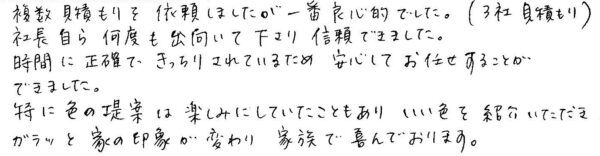 複数見積もりを依頼しましたが一番良心的でした。(3社見積もり)
社長自ら何度も出向いて下さり信頼できました。
時間に正確で、きっちりされているため安心してお任せすることが
できました。
特に色の提案は楽しみにしていたこともあり いい色を紹介いただき
ガラッと家の印象が変わり 家族で喜んでおります。